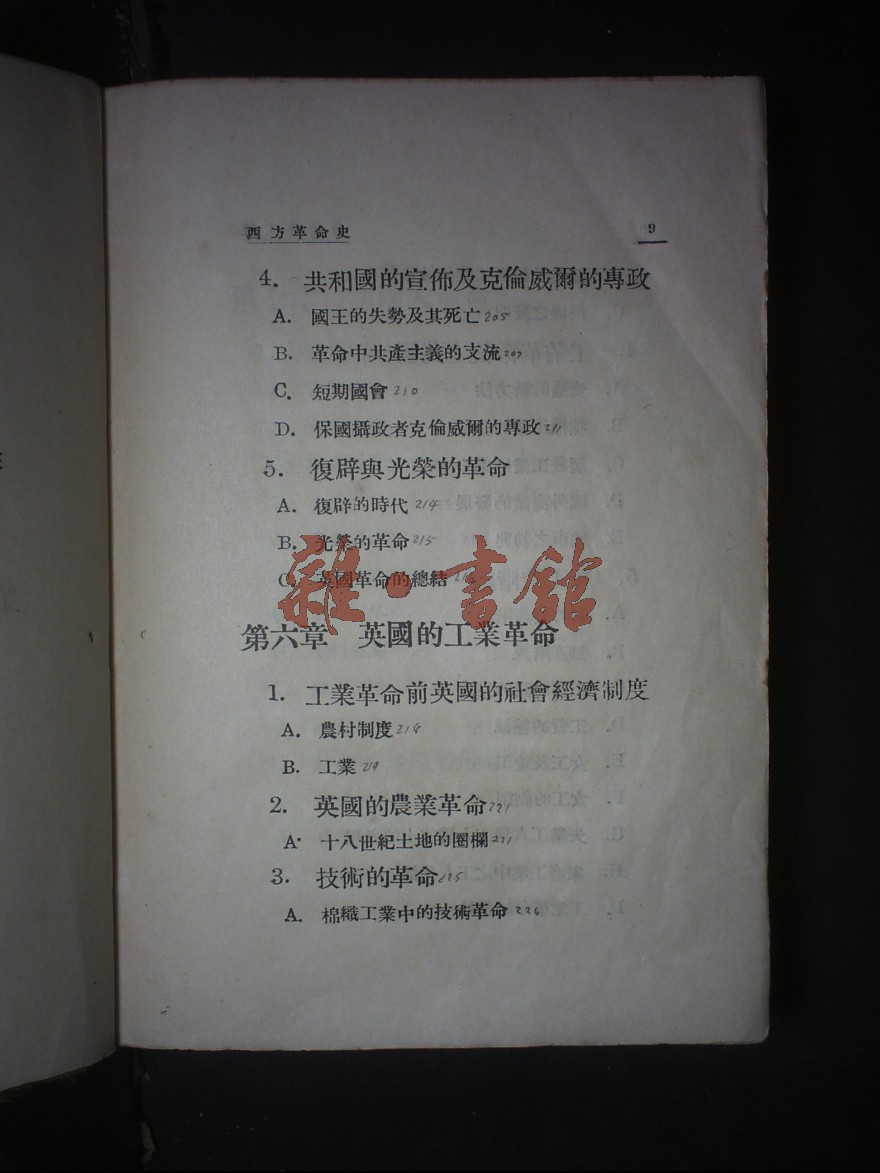 西方革命史 9
4. 共和國的宣佈及克倫威爾的專政
A. 國王的失勢及其死亡 205
B. 革命中共產主義的支流 207
C. 短期國會 210
D. 保國攝政者克倫威爾的專政 211
5. 復辟與光榮的革命
A. 復辟的時代 214
B. 光榮的革命 215
C. 英國革命的總結
雜·書館
第六章 英國的工業革命
1. 工業革命前英國的社會經濟制度
A. 農村制度 218
B. 工業 219
2. 英國的農業革命 221
A. 十八世紀土地的圈欄 221
3. 技術的革命 225
A. 棉織工業中的技術革命 226